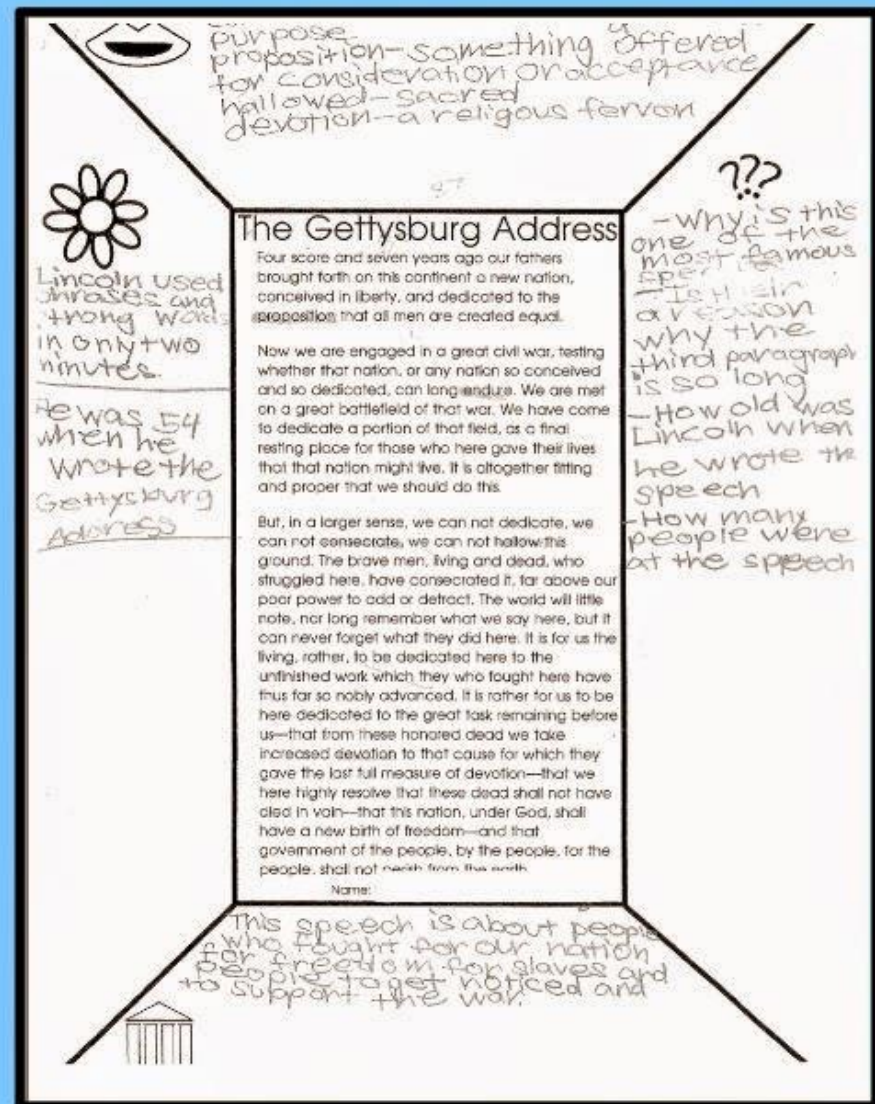 purpose
proposition-something offered
for consideration or acceptance
hallowed-sacred
devotion-a religous fervor
87
Lincoln used
phrases and
strong words
in only two
minutes.
He was 54
when he
wrote the
Gettysburg
Address
The Gettysburg Address
Four score and seven years ago our fathers
brought forth on this continent a new nation,
conceived in liberty, and dedicated to the
proposition that all men are created equal.
Now we are engaged in a great civil war, testing
whether that nation, or any nation so conceived
and so dedicated, can long endure. We are met
on a great battlefield of that war. We have come
to dedicate a portion of that field, as a final
resting place for those who here gave their lives
that that nation might live. It is altogether fitting
and proper that we should do this.
But, in a larger sense, we can not dedicate, we
can not consecrate, we can not hallow this
ground. The brave men, living and dead, who
struggled here, have consecrated it, far above our
poor power to add or detract. The world will little
note, nor long remember what we say here, but it
can never forget what they did here. It is for us the
living, rather, to be dedicated here to the
unfinished work which they who fought here have
thus far so nobly advanced. It is rather for us to be
here dedicated to the great task remaining before
us—that from these honored dead we take
increased devotion to that cause for which they
gave the last full measure of devotion—that we
here highly resolve that these dead shall not have
died in vain—that this nation, under God, shall
have a new birth of freedom—and that
government of the people, by the people, for the
people, shall not perish from the earth
Name:
???
-Why is this
one of the
most famous
-Is their
a reason
why the
third paragraph
is so long
-How old was
Lincoln when
he wrote the
speech
-How many
people were
at the speech
This speech is about people
who fought for our nation
for freedom for slaves and
people to get noticed and
to support the war.